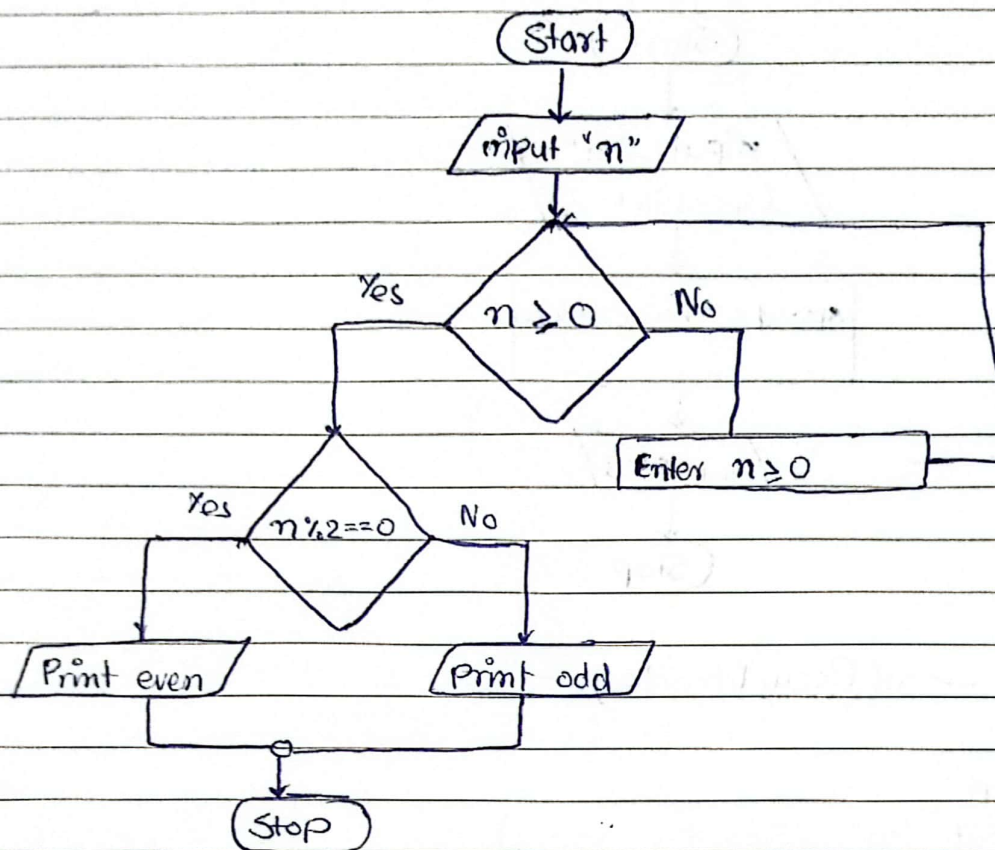 Start
input "n"
Yes
n ≥ 0
No
Enter n ≥ 0
Yes
n%2==0
No
Print even
Print odd
Stop